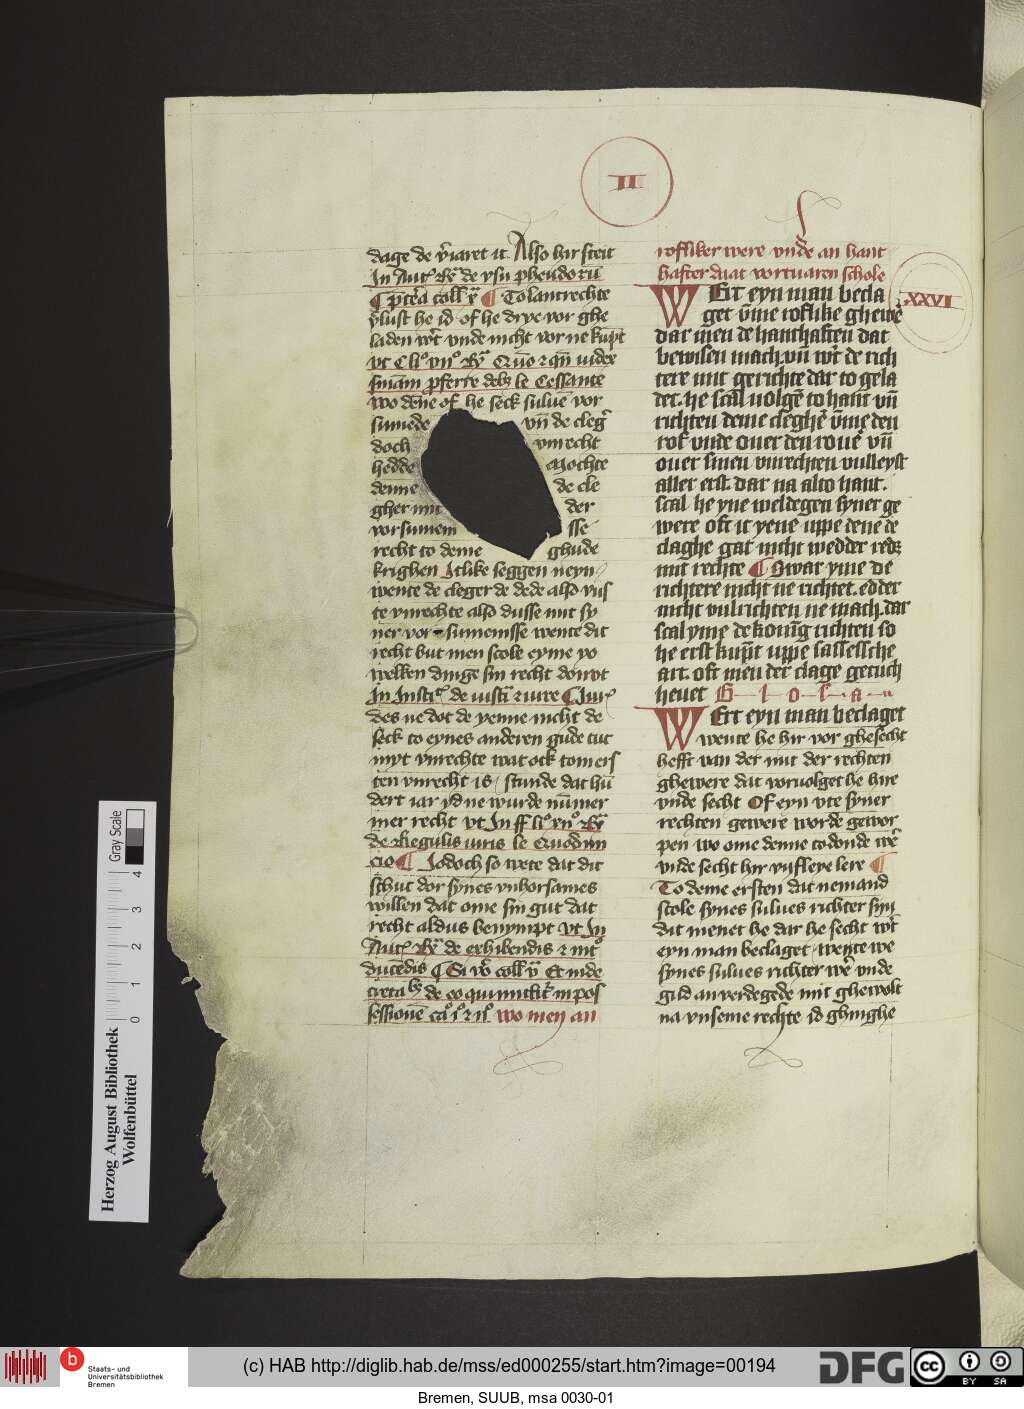 II
dage de v̄iaret is. Also hir steit
In Aut̉ Rꝫ de vsu pheudorū
¶ p̄terea coll̄ v̄ ¶ To lantrechte
v̄lust he id of he drye vor ghe
laden wert vnde nicht vor ne kūpt
sinam pferre debꝫ le Cessante
wo dēne of he seck suluē vor
sumede vn̄ de cleg̉
doch vnrecht
hedde Mochte
denne de cle
gher mit der
vorsumem sse
recht to deme ghude
krighen Itlike seggen neyn
wente de cleger de dede also vns
te vnrechte also dusse mit sy
ner vor sumenisse wente dit
recht but men scole eyme yo
welken dinge sin recht donvt
In Instỉ de iustỉ ⁊ iure ¶ Jur
des ne dot de yenne nicht de
seck to eynes anderen gude tut
myt vnrechte wat ock tom ers
ten vnrecht is / stunde dat hū
dert iar yd ne wurde nūmer
mer recht vt In ff li° vn° Rꝫ
de Regulis iuris le Quod in
cio ¶ Jodoch so wete dat dit
schut dor synes vnhorsames
willen dat ome sin gut dat
recht aldus benympt vt In
Aut̉ Rꝫ de exhibendis ⁊ int°
ducēdis ¶ Si v̄o coll̄ v̄ Et in de
creta
sessionē ca° i° ⁊ ii° wo men an
rofliker were vnde an hant
hafter daat vortuaren schole
XXVI
WErt eyn man becla
get vm̄e roflike ghewē
dar men de hanthaften dat
bewisen mach. vn̄ wert de rich
tere mit gerichte dar to gela
det. he scal volgē to hant vn̄
richten deme cleghē vm̄e den
rof vnde ouer den rouē vn̄
ouer sinen vnrechten vulleyst
aller erst. dar na alto hant.
scal he yne weldegen syner ge
were oft it yene vppe deme de
claghe gat nicht wedder redꝫ
mit rechte ¶ Swar yme de
richtere nicht ne richtet. edder
nicht vulrichten ne mach. dar
scal yme de konīg richten so
he erst kūpt vppe sassessche
art. oft men der clage getuch
heuet Glosa
WErt eyn man beclaget
wente he hir vor ghesecht
hefft van der mit der rechten
ghewere dat voruolget he hire
vnde secht Of eyn vte syner
rechten gewere worde gewor
pen wo ome denne to donde wē
vnde secht hyr vnsseye lere ¶
To deme ersten dat nemand
scole synes sulues richter syn
dit menet he dar he secht wert
eyn man beclaget / wente we
synes sulues richter wē vnde
gud anverdegede mit ghewolt
na vnseme rechte id ghinghe
Gray Scale
0 1 2 3 4
Herzog August Bibliothek
Wolfenbüttel
b
Staats- und
Universitätsbibliothek
Bremen
(c) HAB http://diglib.hab.de/mss/ed000255/start.htm?image=00194
DFG
cc BY SA
Bremen, SUUB, msa 0030-01